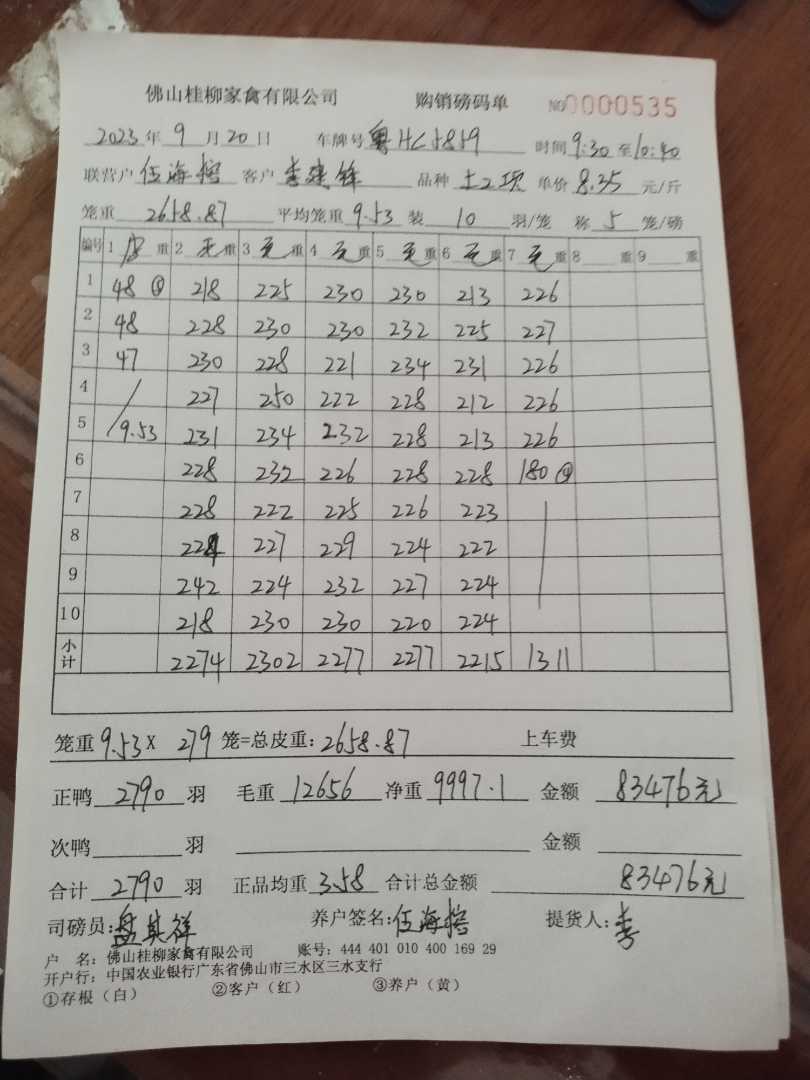 佛山桂柳家禽有限公司 购销磅码单 №0000535
2023年9月20日 车牌号 粤HC5859 时间 9:30 至 10:40
联营户 伍海榕 客户 李建锋 品种 土2项 单价 8.35 元/斤
笼重 2658.87 平均笼重 9.53 装 10 羽/笼 称 5 笼/磅
编号 1 皮 重 2 毛 重 3 毛 重 4 毛 重 5 毛 重 6 毛 重 7 毛 重 8 重 9 重
1 48⑤ 218 225 230 230 213 226
2 48 228 230 230 232 225 227
3 47 230 228 221 234 231 226
4 / 227 250 222 228 212 226
5 /9.53 231 234 232 228 213 226
6 228 232 226 228 228 180④
7 228 222 225 226 223
8 224 227 229 224 222
9 242 224 232 227 224
10 218 230 230 220 224
小计 2274 2302 2277 2277 2215 1311
笼重 9.53 X 279 笼=总皮重: 2658.87 上车费
正鸭 2790 羽 毛重 12656 净重 9997.1 金额 83476元
次鸭 羽 金额
合计 2790 羽 正品均重 3.58 合计总金额 83476元
司磅员: 盘其祥 养户签名: 伍海榕 提货人: 李
户 名: 佛山桂柳家禽有限公司 账号: 444 401 010 400 169 29
开户行: 中国农业银行广东省佛山市三水区三水支行
①存根（白） ②客户（红） ③养户（黄）